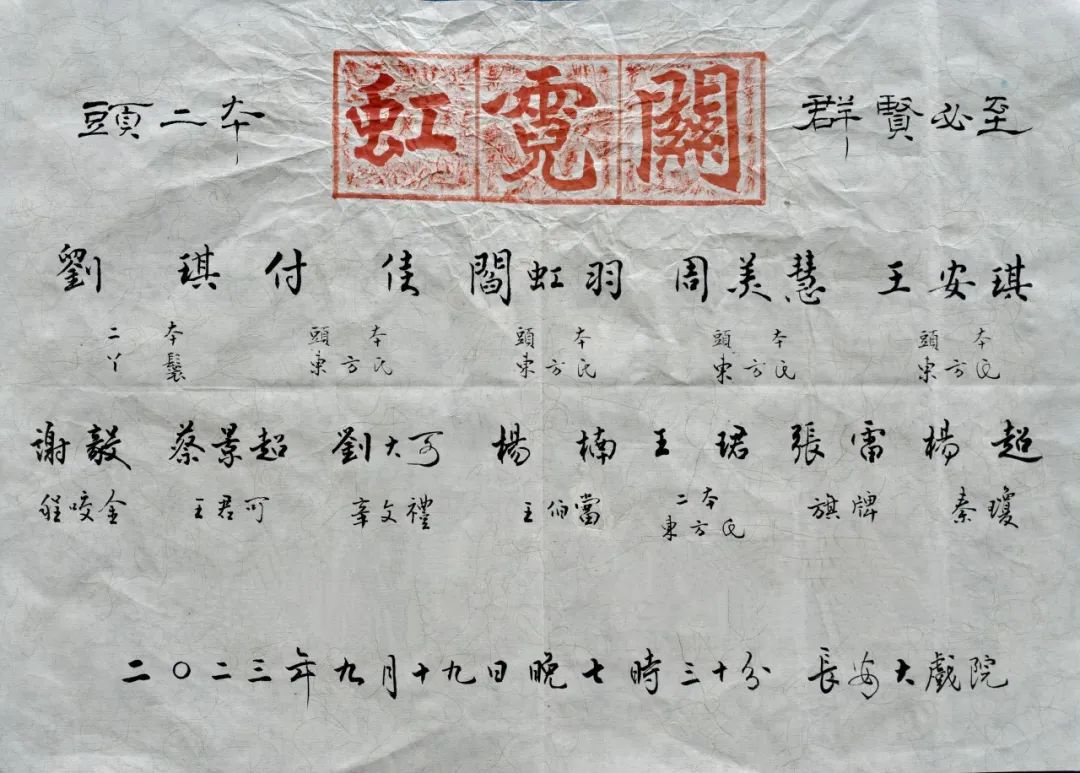 頭二本 虹霓關 群賢必至
劉琪 付佳 閻虹羽 周美慧 王安琪
二本 頭本 頭本 頭本 頭本
丫鬟 東方氏 東方氏 東方氏 東方氏
謝毅 蔡景超 劉大可 楊楠 王珺 張雷 楊超
程咬金 王君可 辛文禮 王伯當 二本 旗牌 秦瓊
東方氏
二〇二三年九月十九日晚七時三十分 長安大戲院